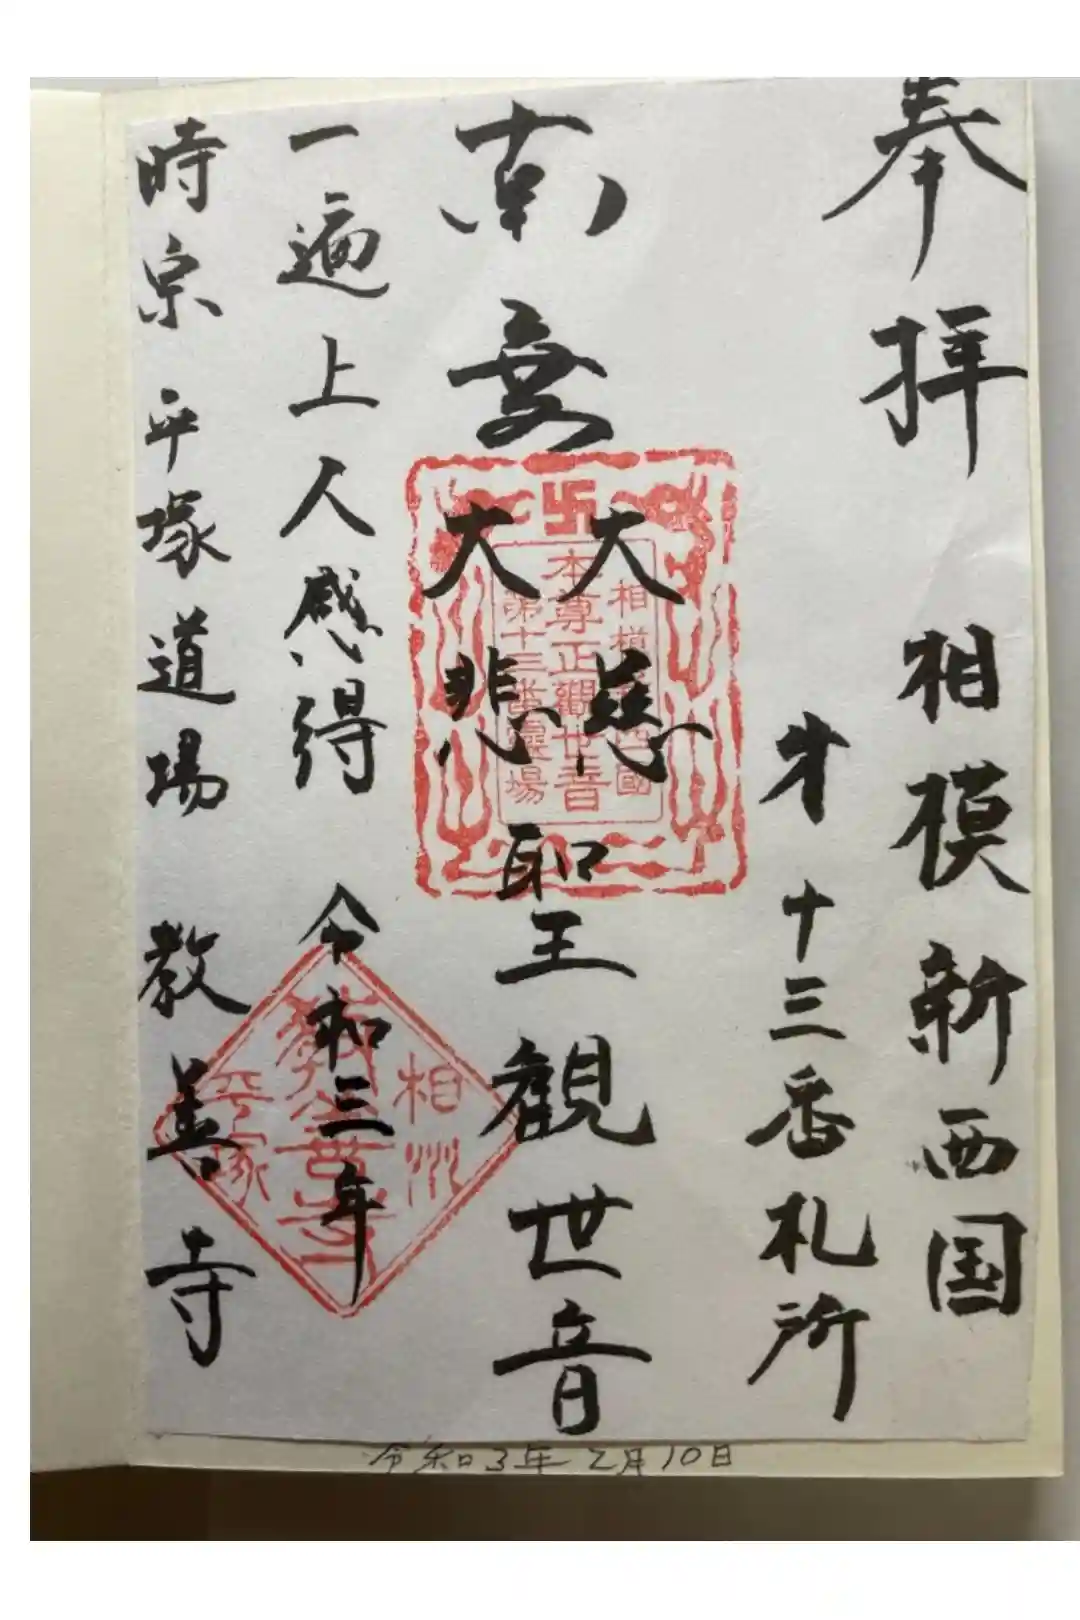 奉拝
相模新西国
才十三番札所
南無
大慈
大悲
聖王観世音
一遍上人感得
令和三年
時宗 平塚道場 教善寺
卍
相模新西國
本尊正觀世音
第十三番靈場
相州
教善寺
平塚
令和3年2月10日